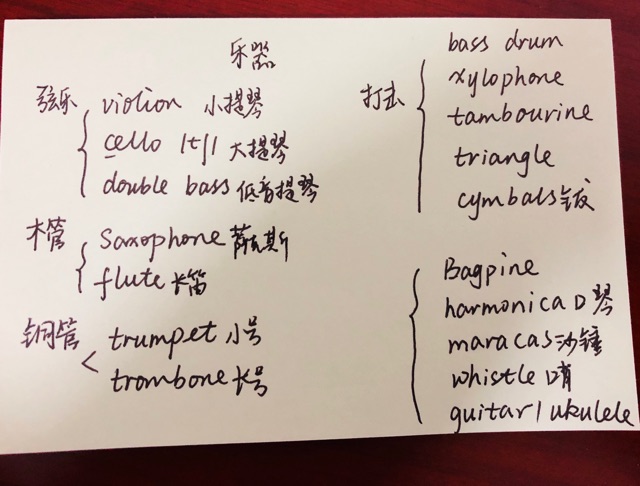 乐器
弦乐
violion 小提琴
cello /tʃ/ 大提琴
double bass 低音提琴
木管
saxophone 萨克斯
flute 长笛
铜管
trumpet 小号
trombone 长号
打击
bass drum
xylophone
tambourine
triangle
cymbals 钹
Bagpine
harmonica 口琴
maracas 沙锤
whistle 哨
guitar / ukulele